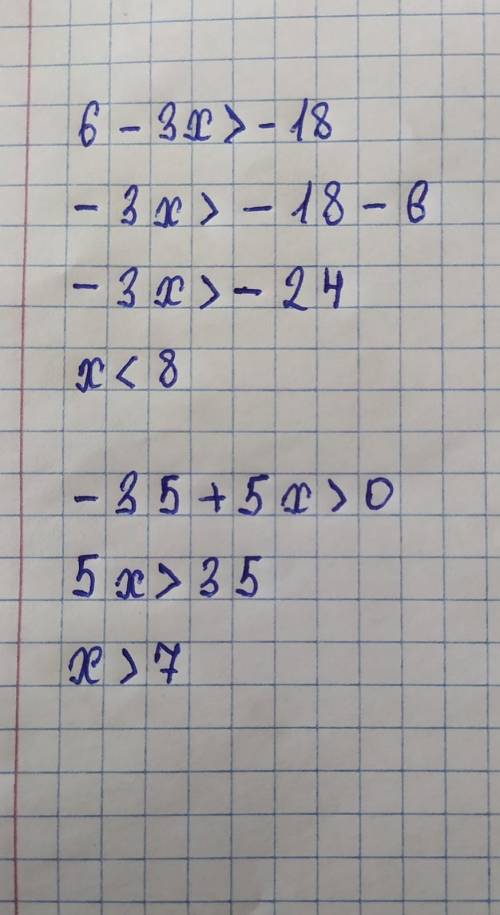 6 - 3x > - 18
- 3x > - 18 - 6
- 3x > - 24
x < 8
- 35 + 5x > 0
5x > 35
x > 7